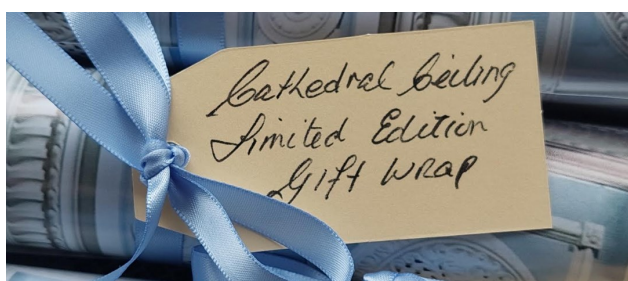 Cathedral Ceiling
Limited Edition
Gift Wrap